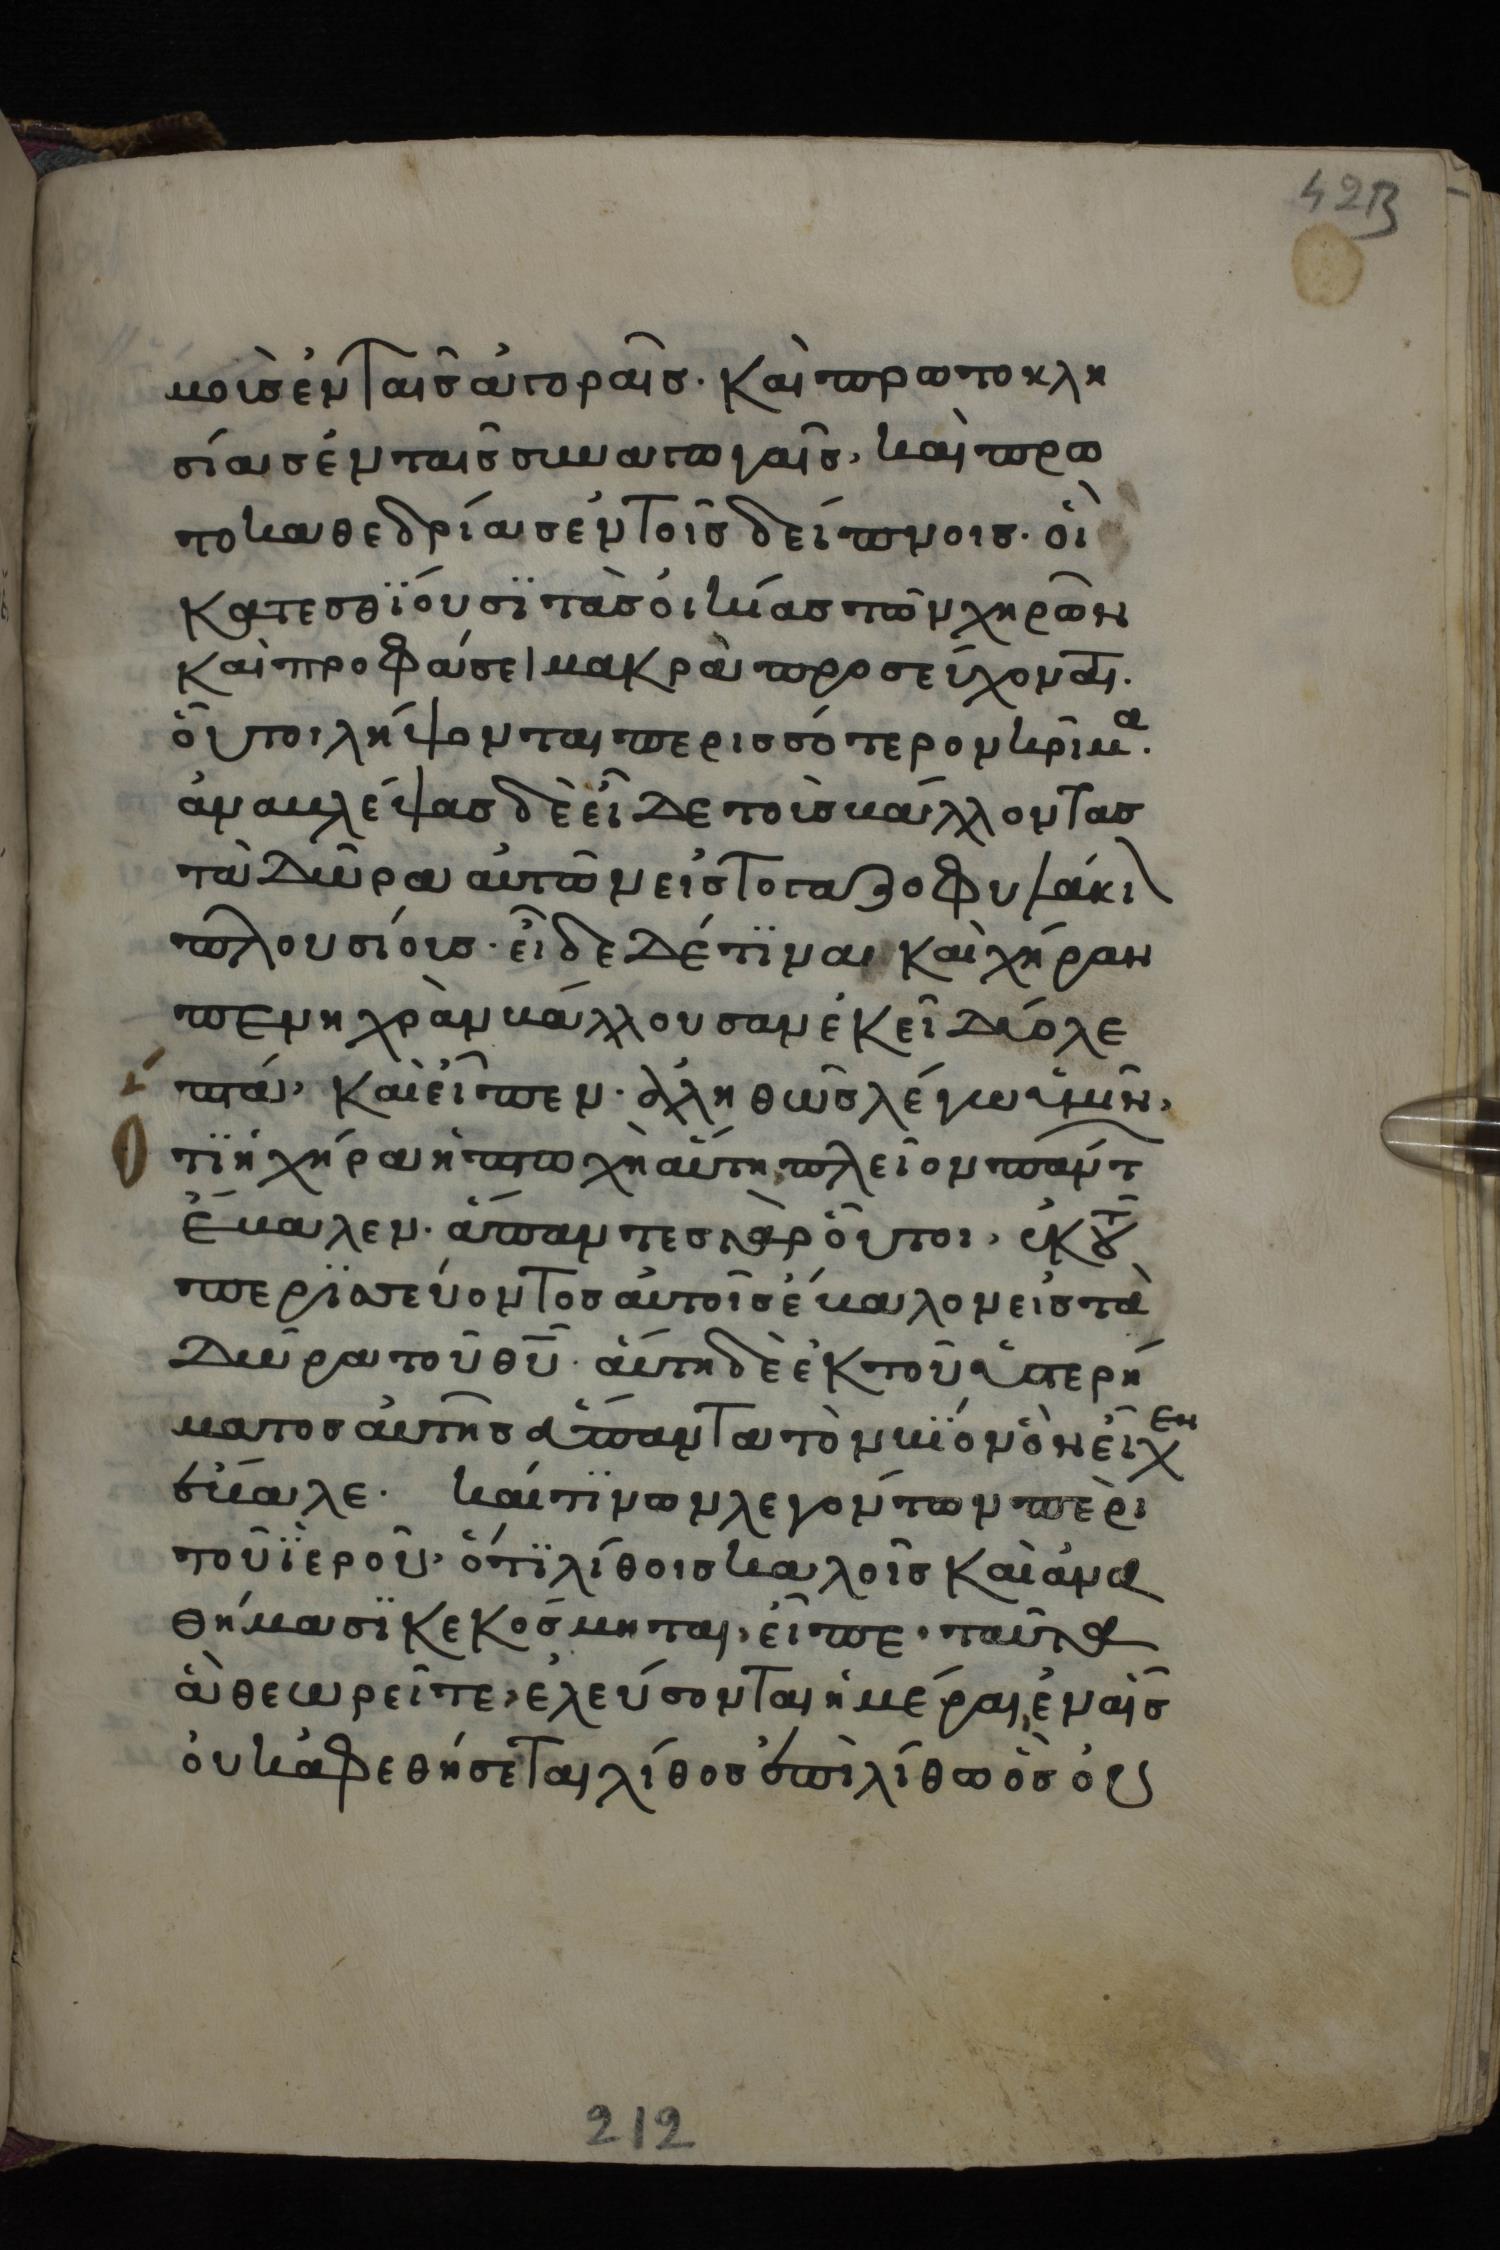 42B
μοὺσ ἐν ταῖσ ἀγοραῖσ. καὶ πρωτοκλη
σίασ ἐν ταῖσ συναγωγαῖσ, καὶ πρω
τοκαθεδρίασ ἐν τοῖσ δείπνοισ. ὁὶ
κατεσθϊόυσϊ τὰσ ὀικίασ τῶν χηρῶν
καὶ προφάσει μακρὰ προσεύχονται.
ὁῦτοι λήψονται περισσότερον κρῖμα.
ἀναβλέψασ δὲ εἶδε τοὺσ βάλλοντασ
τὰ δῶρα αὐτῶν εἰσ το γαζοφυλάκι
πλουσίουσ. εἶδε δέ τϊνα καὶ χήραν
πενηχρὰν βάλλουσαν ἐκεῖ δύο λε
πτά, καὶ εἶπεν. ἀληθῶσ λέγω ὑμῖν,
τϊ ἡ χήρα ἡ πτωχὴ ἅυτη πλεῖον πάντ
ἔβαλεν. ἅπαντεσ γὰρ ὁῦτοι, ἐκ τοῦ
περϊσσεύοντοσ αὐτοῖσ ἔβαλον εἰσ τὰ
δῶρα τοῦ θῦ. ἅυτη δὲ ἐκ τοῦ ὑστερή
ματοσ αὐτῆσ ἅπαντα τὸν βϊον ὃν εἶχεν
ἔβαλε. καί τϊνων λεγόντων περὶ
τοῦ ϊεροῦ, ὅτϊ λίθοισ καλοῖσ καὶ ἀνα
θήμασϊ κεκόσμηται, εἶπε. ταῦτα
ἃ θεωρεῖτε, ἐλεύσονται ἡμέραι, ἐν αἷσ
ὀυκ ἀφεθήσεται λίθοσ ἐπὶ λίθω ὃσ ὀυ
212